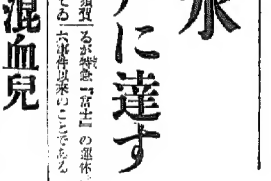 水
に達す
るが特急『富士』の運休
六事件以来のことである
須賀
てゐ
混血兒